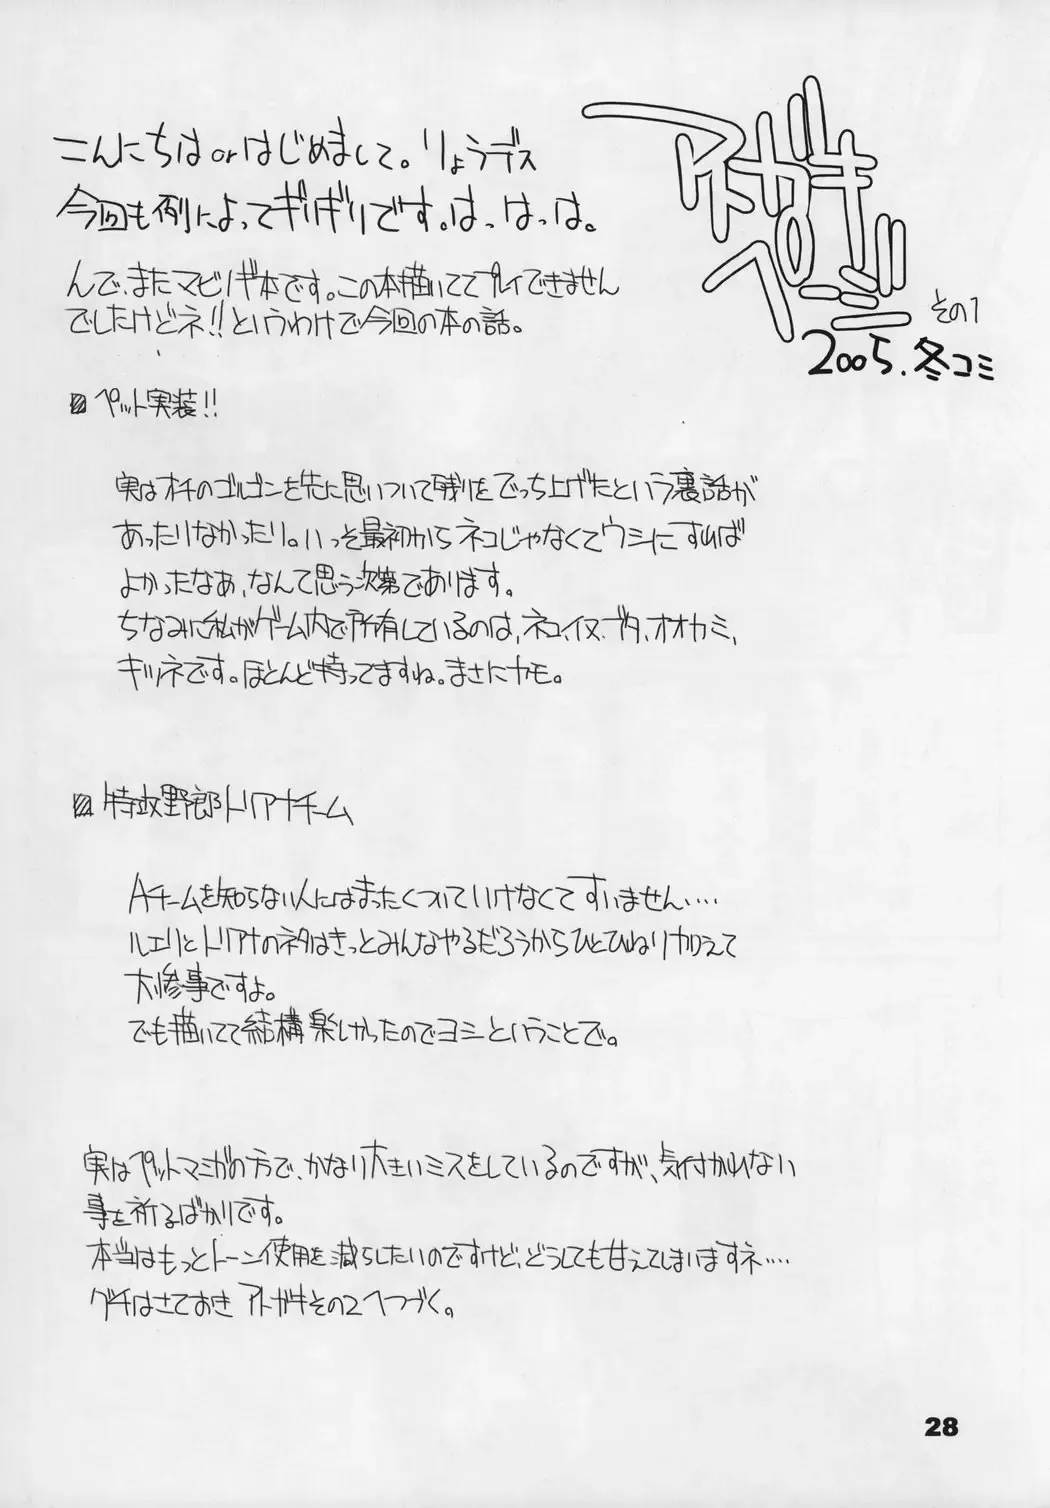 アトガキ
ページ
その1
2005.冬コミ
こんにちはorはじめまして。りょうデス
今回も例によってギリギリです。はっはっは。
んで、またマビノギ本です。この本描いててプレイできません
でしたけどネ!!というわけで今回の本の話。
ペット実装!!
実はオチのゴルゴンを先に思いついて残りをでっち上げたという裏話が
あったりなかったり。いっそ最初からネコじゃなくてウシにすれば
よかったなぁ、なんて思う次第であります。
ちなみに私がゲーム内で所有しているのは、ネコ、イヌ、ブタ、オオカミ、
キツネです。ほとんど持ってますね。まさにカモ。
特攻野郎トリアナチーム
Aチームを知らない人にはまったくついていけなくてすいません‥‥
ルエリとトリアナのネタはきっとみんなやるだろうからひとひねり加えて
大惨事ですよ。
でも描いてて結構楽しかったのでヨシということで。
実はペットマンガの方で、かなり大きいミスをしているのですが、気付かれない
事を祈るばかりです。
本当はもっとトーン使用を減らしたいのですけど、どうしても甘えてしまいますネ‥‥
グチはさておきアトガキその2へつづく。
28